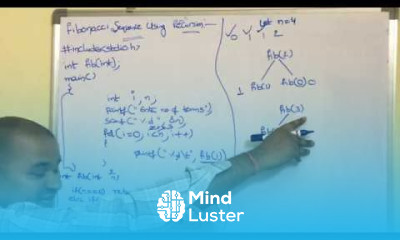 Fibonacci Sequence Using Recursion
#include<stdio.h>
int fib(int);
main()
{
int i, n;
printf("Enter no of terms");
scanf("%d", &n);
for(i=0; i<n; i++)
printf("%d\t", fib(i));
}
int fib(int n)
{
if(n==0)
let n=4
0 1 1 2
fib(2)
1 fib(1) fib(0) 0
fib(3)
Mind
Luster